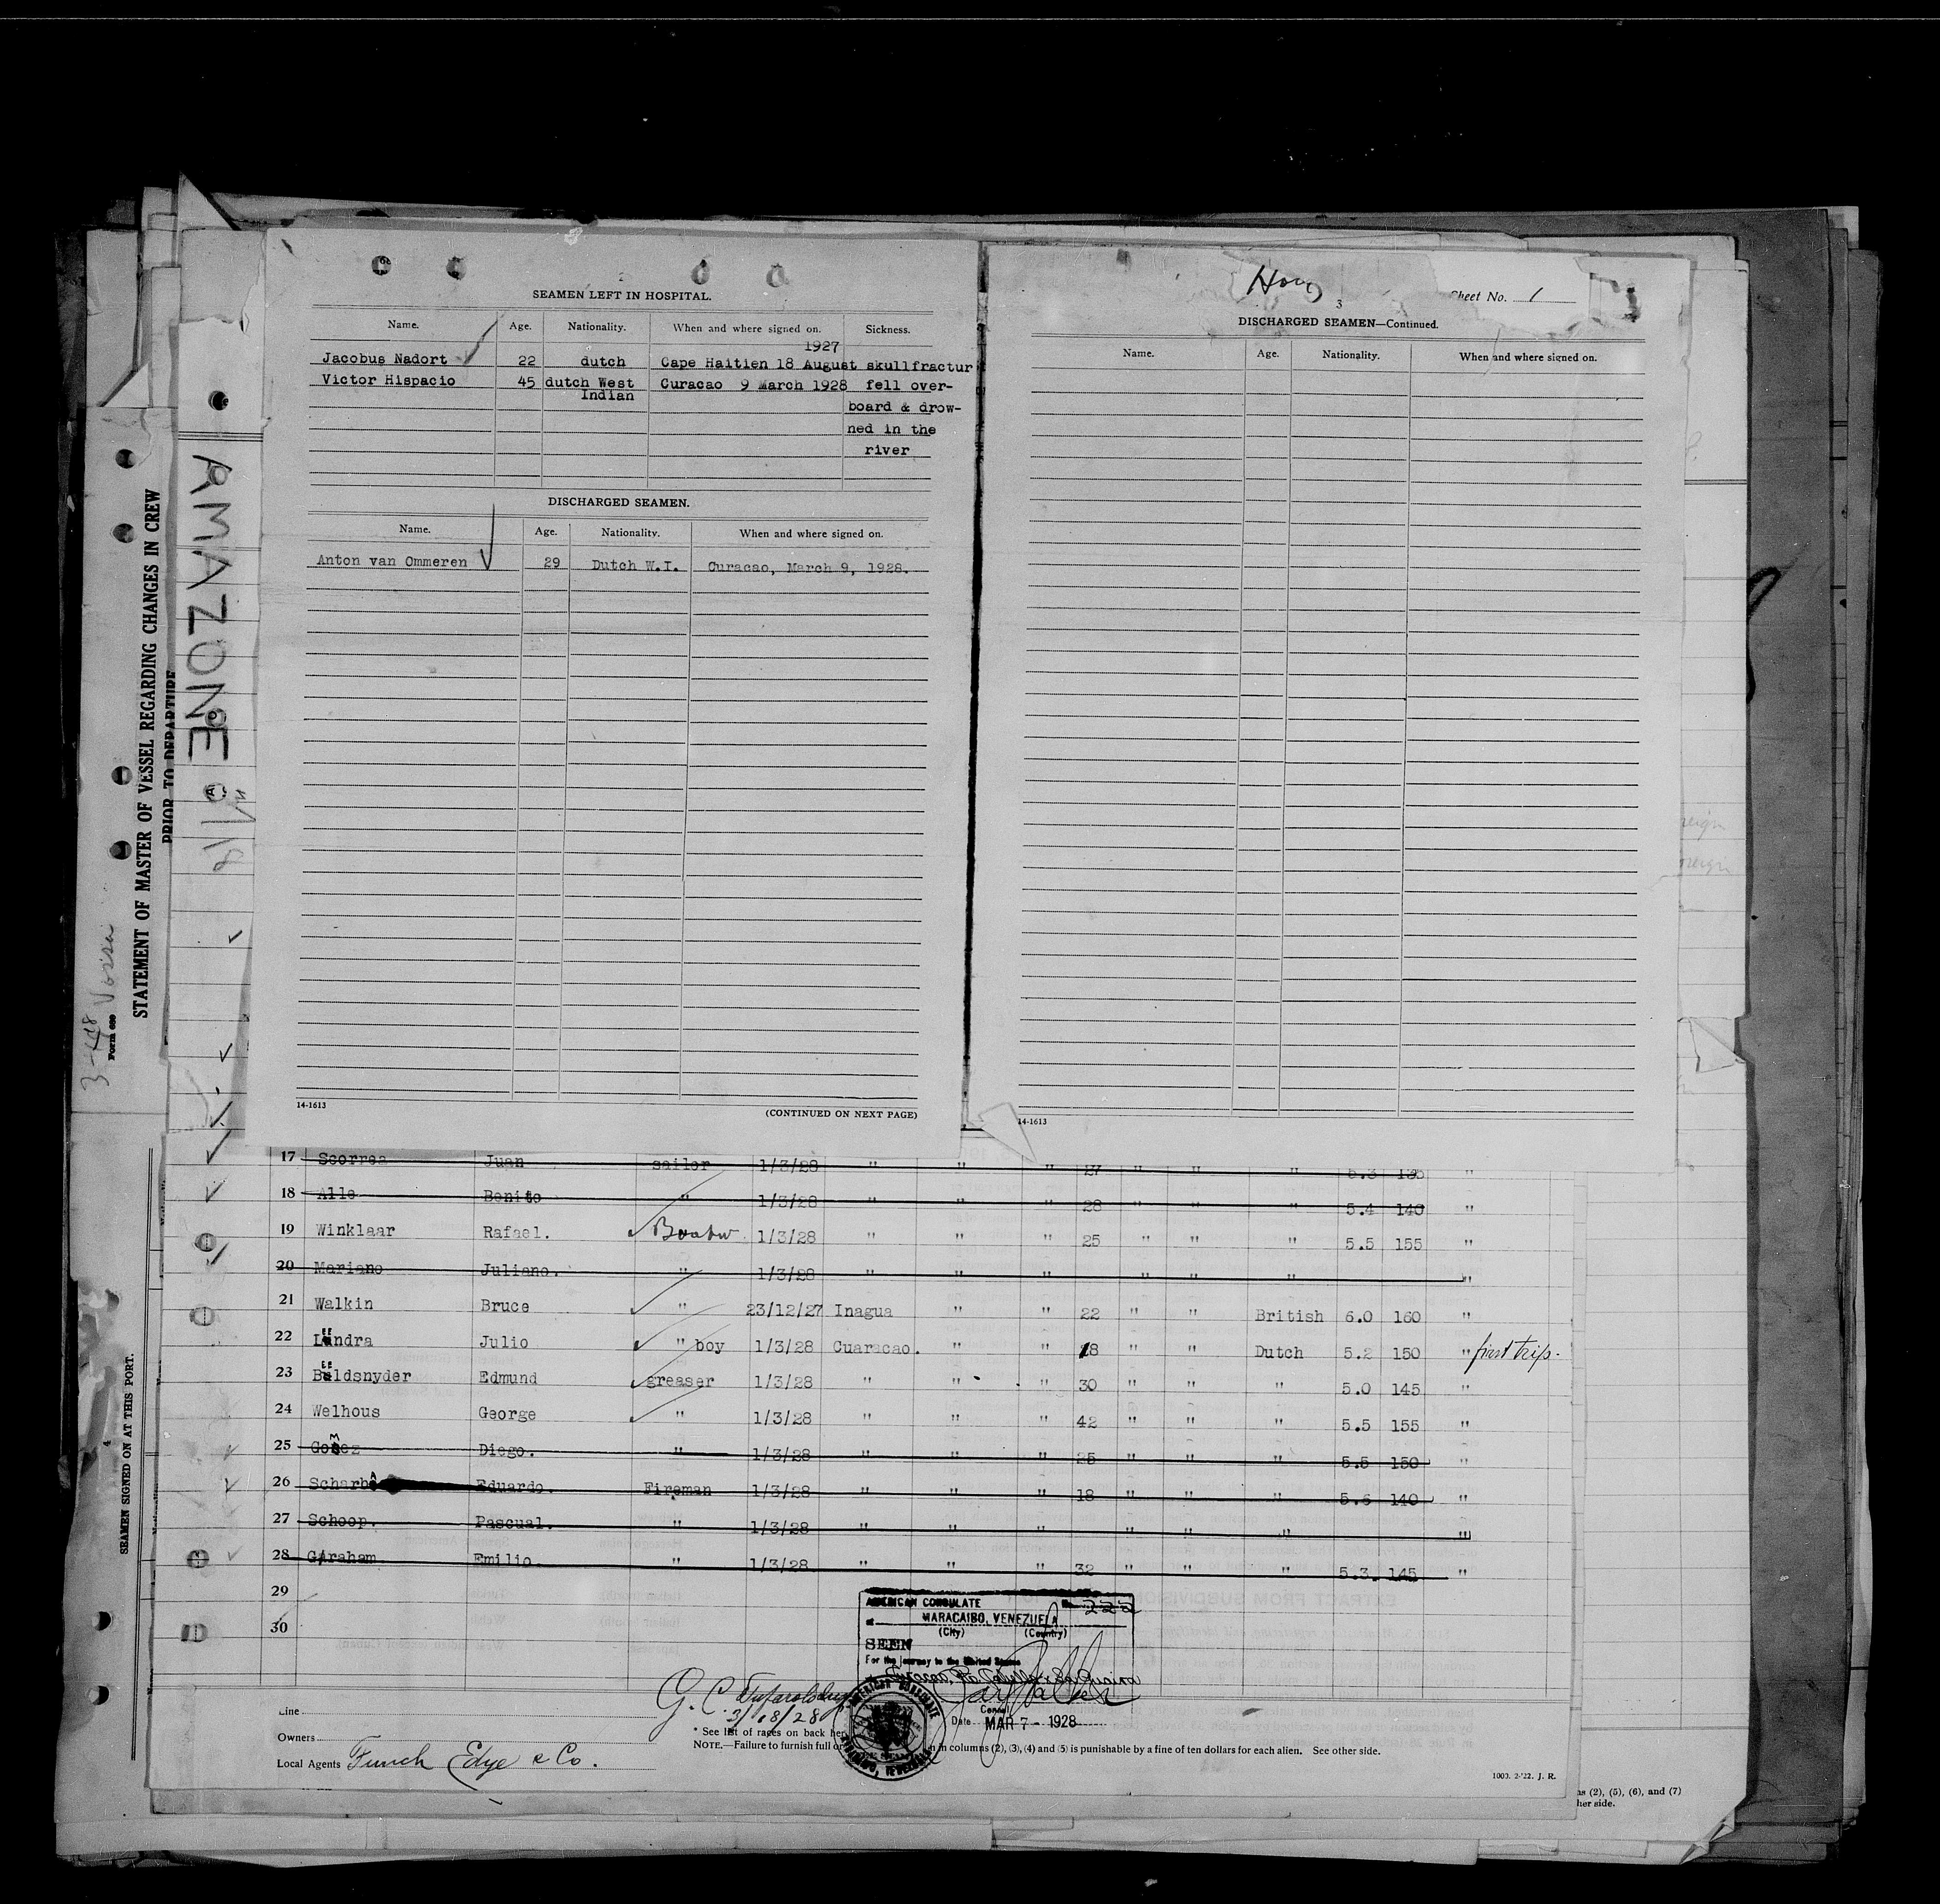 SEAMEN LEFT IN HOSPITAL.
Name. Age. Nationality. When and where signed on. Sickness.
1927
Jacobus Nadort 22 dutch Cape Haitien 18 August skullfractur
Victor Hispacio 45 dutch West Curacao 9 March 1928 fell over-
Indian
board & drow-
ned in the
river
DISCHARGED SEAMEN.
Name. Age. Nationality. When and where signed on.
Anton van Ommeren 29 Dutch W.I. Curacao, March 9, 1928.
14-1613
(CONTINUED ON NEXT PAGE)
Sheet No. 1
3
DISCHARGED SEAMEN—Continued.
Name. Age. Nationality. When and where signed on.
14-1613
STATEMENT OF MASTER OF VESSEL REGARDING CHANGES IN CREW
PRIOR TO DEPARTURE
Form 680
AMAZONE
SEAMEN SIGNED ON AT THIS PORT.
17 Scorrea Juan sailor 1/3/28 " " " 27 " " " 5.3 "
18 Alle Benito " 1/3/28 " " " 28 " " " 5.4 140 "
19 Winklaar Rafael. 1/3/28 " " " 25 " " " 5.5 155 "
20 Mariano Juliano. " 1/3/28 " " " " " " "
21 Walkin Bruce " 23/12/27 Inagua " " 22 " " British 6.0 160 "
22 Leendra Julio " boy 1/3/28 Cuaracao. " " 18 " " Dutch 5.2 150 " first trip.
23 Beeldsnyder Edmund greaser 1/3/28 " " " 30 " " " 5.0 145 "
24 Welhous George " 1/3/28 " " " 42 " " " 5.5 155 "
25 Gomez Diego. " 1/3/28 " " " 25 " " " 5.5 150 "
26 Scharba Eduardo. Fireman 1/3/28 " " " 18 " " " 5.6 140 "
27 Schoop. Pascual. " 1/3/28 " " " " " " "
28 Graham Emilio. " 1/3/28. " " " 32 " " " 5.3. 145 "
29
30
AMERICAN CONSULATE
MARACAIBO, VENEZUELA
(City) (Country)
SEEN
For the journey to the United States
Consul
Date MAR 7 - 1928
G. C.
3/18/28
Line
Owners
Local Agents Funch Edye & Co.
* See list of races on back
NOTE.—Failure to furnish full in columns (2), (3), (4) and (5) is punishable by a fine of ten dollars for each alien. See other side.
(2), (5), (6), and (7)
her side.